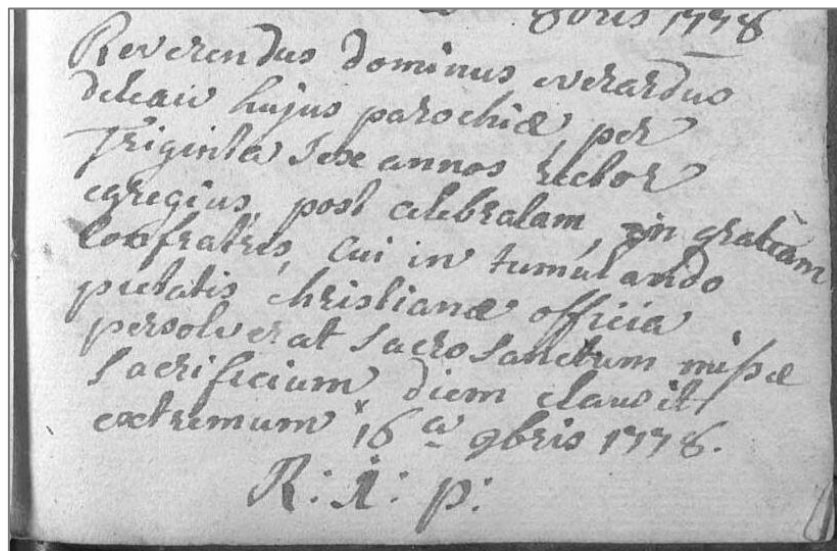 8bris 1778
Reverendus dominus everardus
hujus parochiæ, per
Triginta sex annos rector
egregius, post celebratam, in gratiam
Confratris, cui in tumulando
pietatis christianæ officia
persolverat sacro sanctum missæ
sacrificium diem clausit
extremum 16a 9bris 1778.
R: i: p: